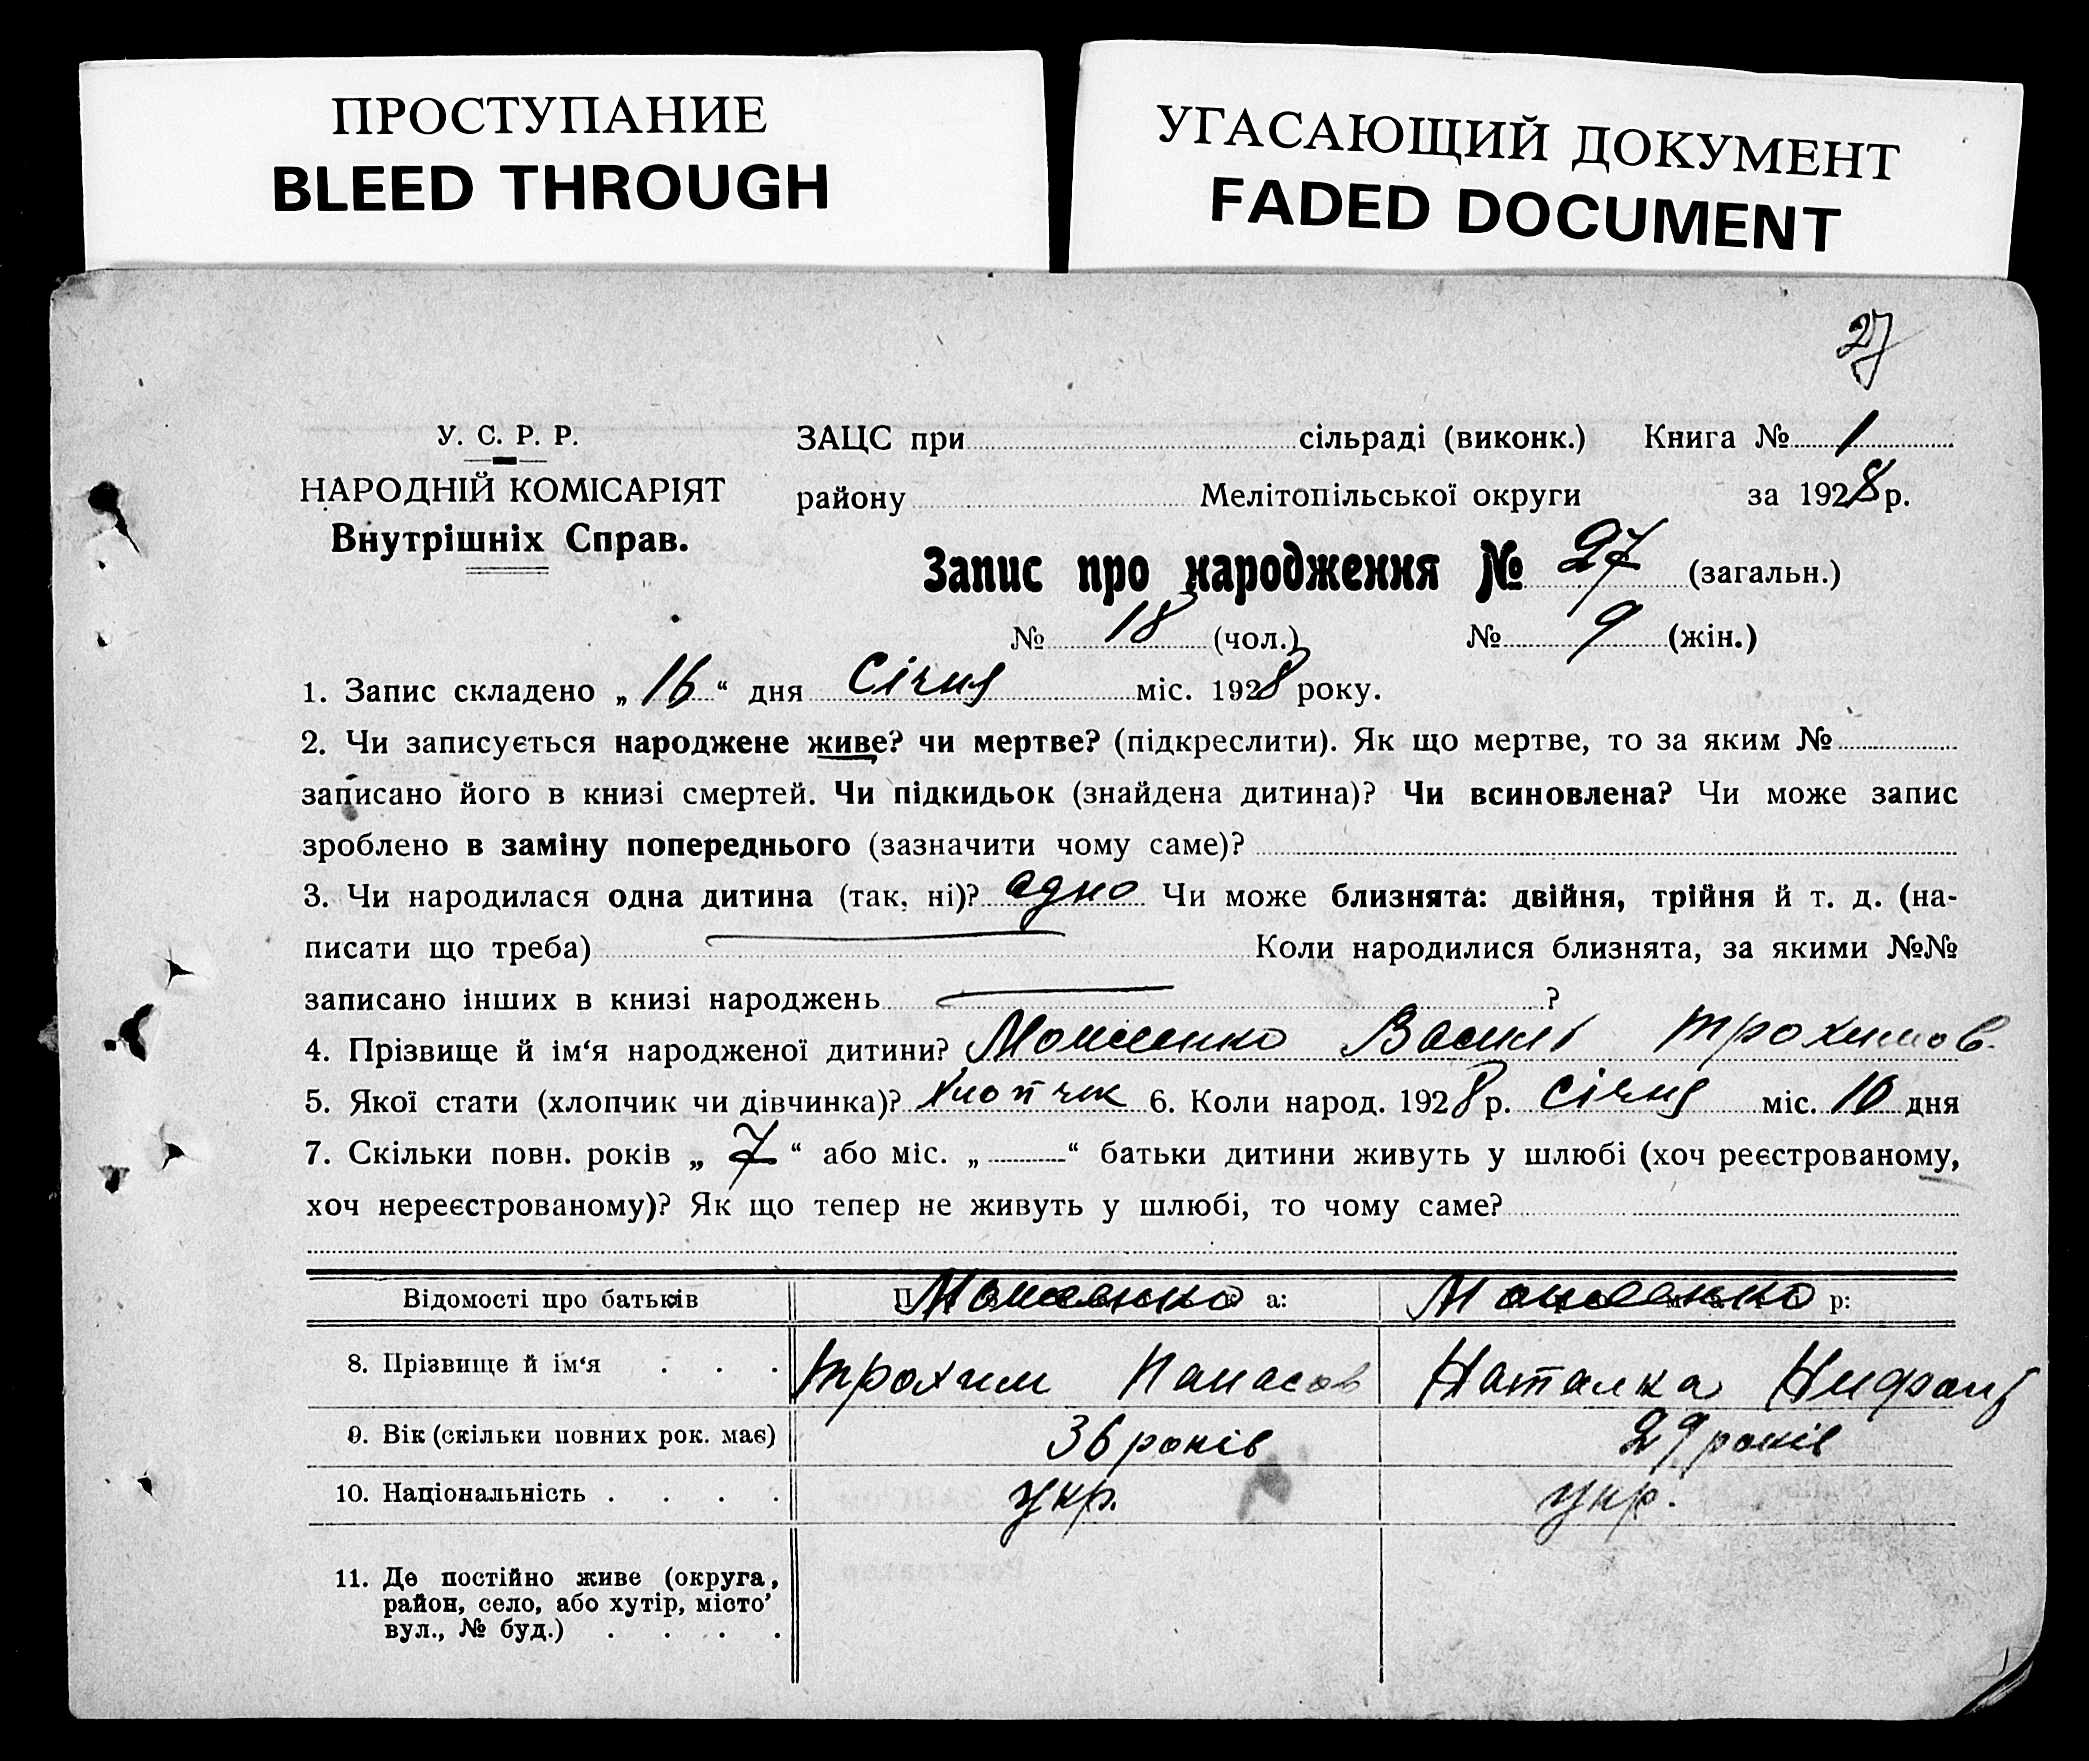 ПРОСТУПАНИЕ
BLEED THROUGH
УГАСАЮЩИЙ ДОКУМЕНТ
FADED DOCUMENT
27
У. С. Р. Р.
НАРОДНІЙ КОМІСАРІЯТ
Внутрішніх Справ.
ЗАЦС при сільраді (виконк.) Книга № 1
району Мелітопільської округи за 1928 р.
Запис про народження № 27 (загальн.)
№ 18 (чол.) № 9 (жін.)
1. Запис складено „16“ дня Січня міс. 1928 року.
2. Чи записується народжене живе? чи мертве? (підкреслити). Як що мертве, то за яким №
записано його в книзі смертей. Чи підкидьок (знайдена дитина)? Чи всиновлена? Чи може запис
зроблено в заміну попереднього (зазначити чому саме)?
3. Чи народилася одна дитина (так, ні)? одно Чи може близнята: двійня, трійня й т. д. (на-
писати що треба) Коли народилися близнята, за якими №№
записано інших в книзі народжень ?
4. Прізвище й ім‘я народженої дитини? Василь Трохимов.
5. Якої стати (хлопчик чи дівчинка)? Хлопчик 6. Коли народ. 1928 р. Січня міс. 10 дня
7. Скільки повн. років „7“ або міс. „ “ батьки дитини живуть у шлюбі (хоч реєстрованому,
хоч нереєстрованому)? Як що тепер не живуть у шлюбі, то чому саме?
Відомості про батьків
8. Прізвище й ім‘я . . . Трохим Панасов Наталка
9. Вік (скільки повних рок. має) 36 років 29 років
10. Національність . . . . укр. укр.
11. Де постійно живе (округа,
район, село, або хутір, місто’
вул., № буд.) . . . .